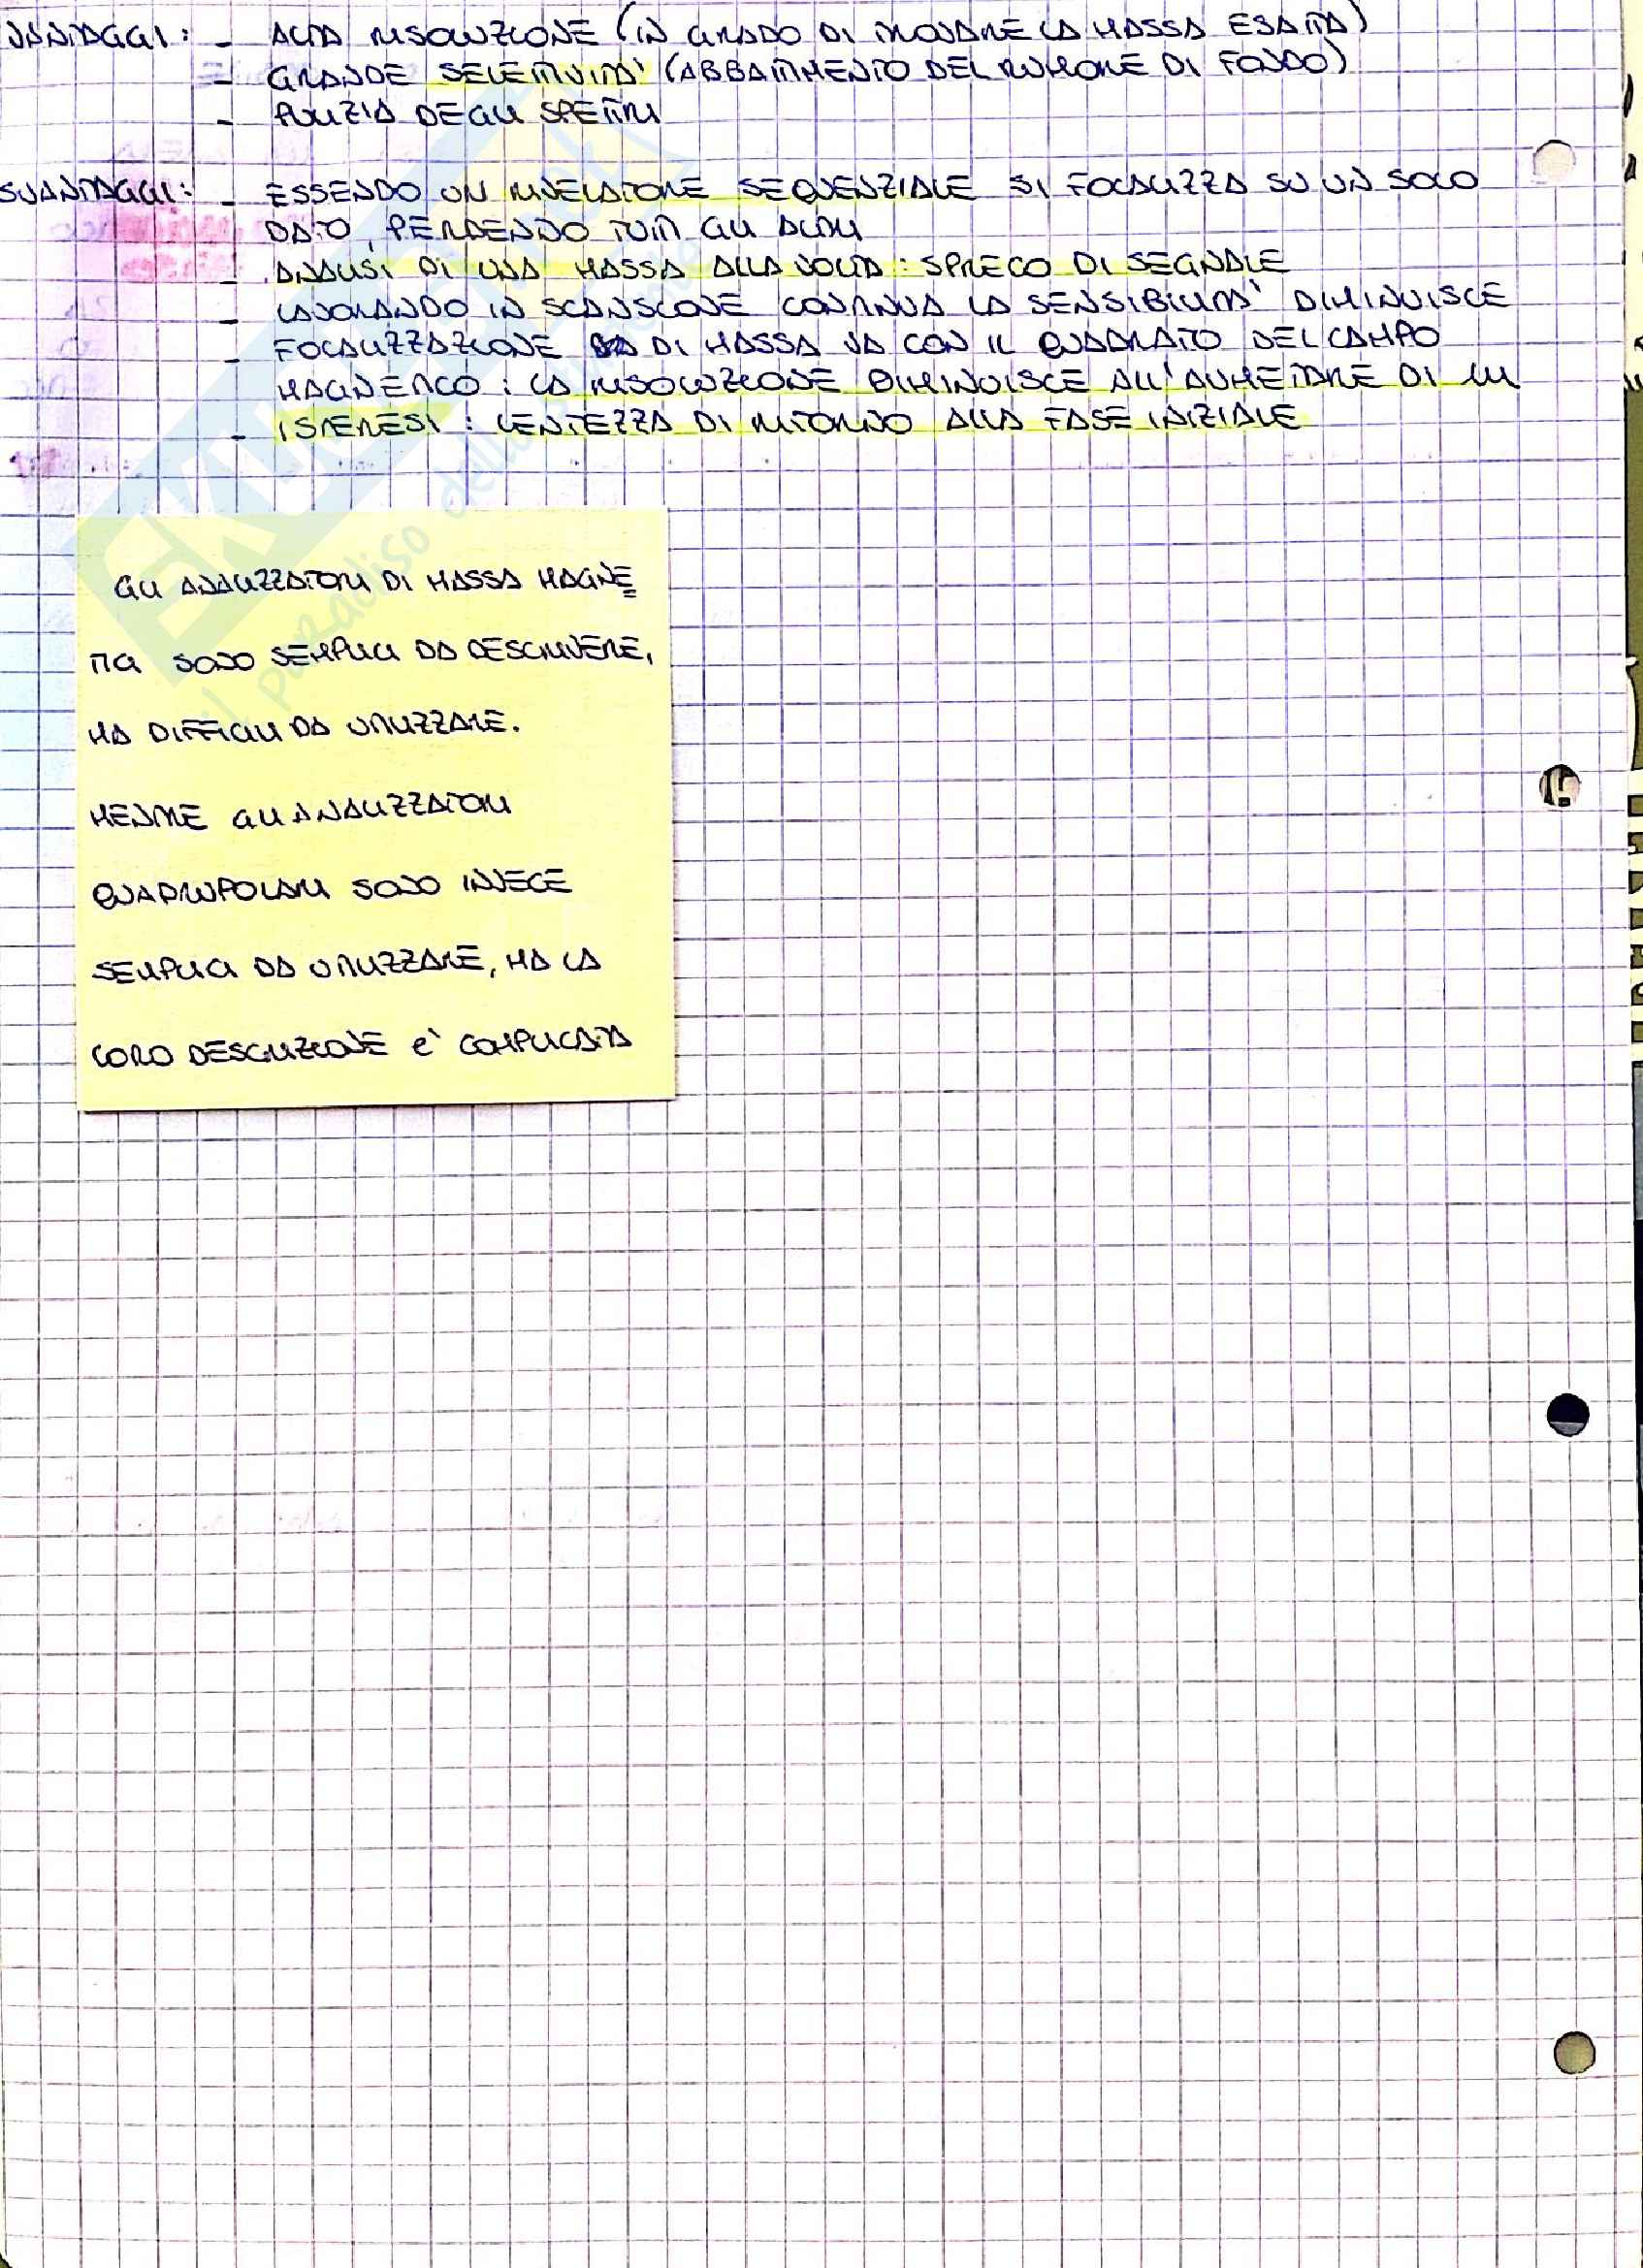 VANTAGGI: - ALTA RISOLUZIONE (IN GRADO DI TROVARE LA MASSA ESATTA)
- GRANDE SELETTIVITA' (ABBATTIMENTO DEL RUMORE DI FONDO)
- PULIZIA DEGLI SPETTRI
SVANTAGGI: - ESSENDO UN RIVELATORE SEQUENZIALE SI FOCALIZZA SU UN SOLO
DATO, PERDENDO TUTTI GLI ALTRI
- ANALISI DI UNA MASSA ALLA VOLTA: SPRECO DI SEGNALE
- LAVORANDO IN SCANSIONE CONTINUA LA SENSIBILITA' DIMINUISCE
- FOCALIZZAZIONE DI MASSA VA CON IL QUADRATO DEL CAMPO
MAGNETICO: LA RISOLUZIONE DIMINUISCE ALL'AUMETARE DI
- ISTERESI: LENTEZZA DI RITORNO ALLA FASE INIZIALE
GLI ANALIZZATORI DI MASSA MAGNE
TICI SONO SEMPLICI DA DESCRIVERE,
MA DIFFICILI DA UTILIZZARE.
MENTRE GLI ANALIZZATORI
QUADRUPOLARI SONO INVECE
SEMPLICI DA UTILIZZARE, MA LA
LORO DESCRIZIONE E' COMPLICATA